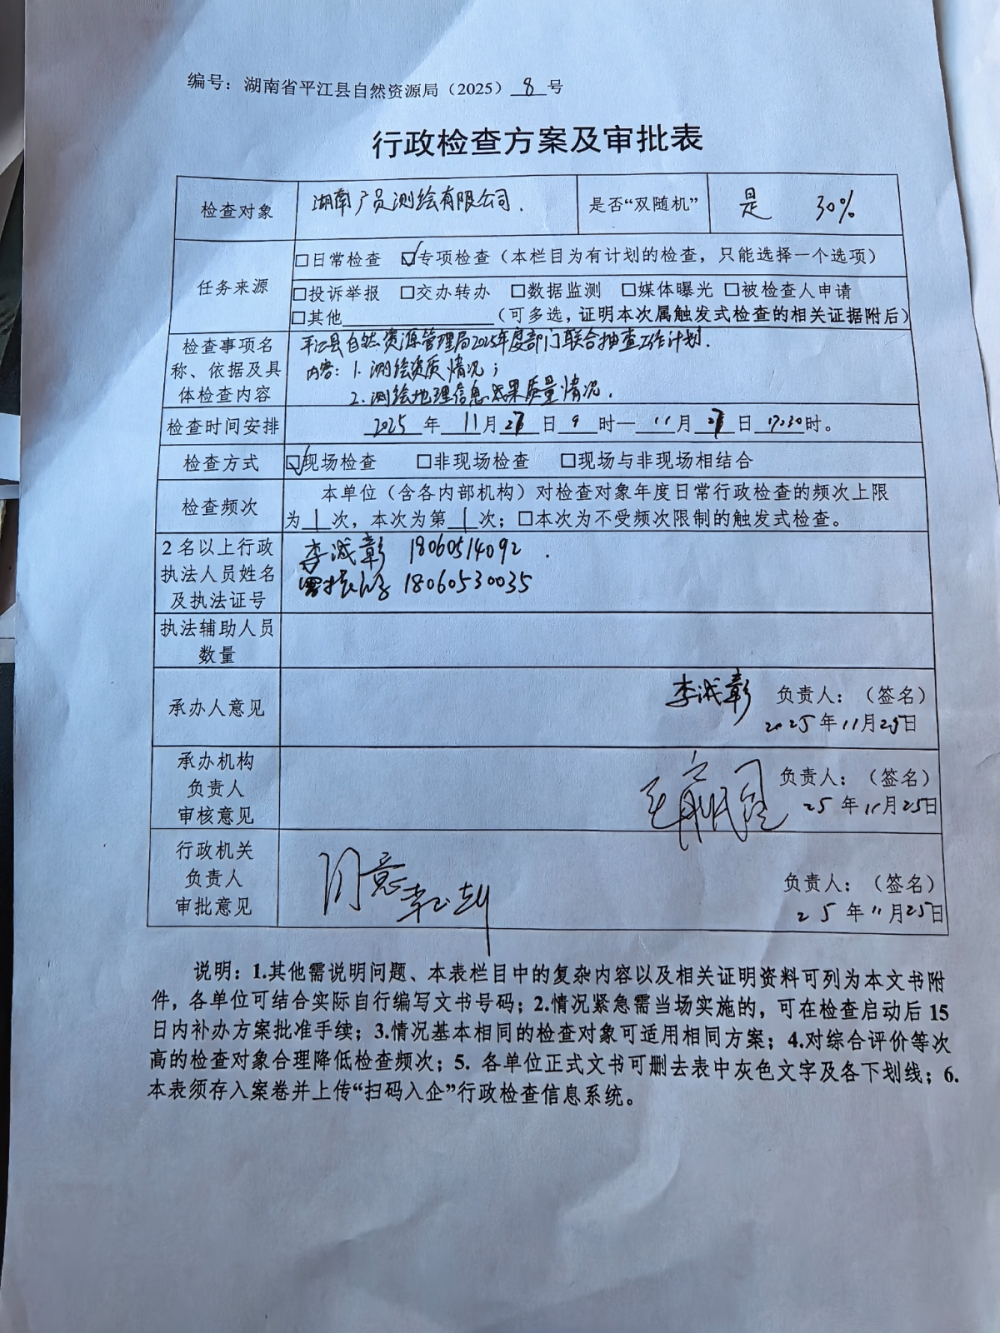 编号：湖南省平江县自然资源局（2025） 8 号
行政检查方案及审批表
检查对象 湖南广员测绘有限公司. 是否“双随机” 是 30%
任务来源 □日常检查 ☑专项检查（本栏目为有计划的检查，只能选择一个选项）
□投诉举报 □交办转办 □数据监测 □媒体曝光 □被检查人申请
□其他 （可多选，证明本次属触发式检查的相关证据附后）
检查事项名称、依据及具体检查内容 平江县自然资源管理局2025年度部门联合抽查工作计划.
内容：1. 测绘资质情况；
2. 测绘地理信息成果质量情况.
检查时间安排 2025 年 11 月 27 日 9 时— 11 月 27 日 17:30 时。
检查方式 ☑现场检查 □非现场检查 □现场与非现场相结合
检查频次 本单位（含各内部机构）对检查对象年度日常行政检查的频次上限
为 1 次，本次为第 1 次；□本次为不受频次限制的触发式检查。
2名以上行政执法人员姓名及执法证号 李诚彰 18060514092 .
18060530035
执法辅助人员数量
承办人意见 李诚彰 负责人：（签名）
2025年11月25日
承办机构负责人审核意见 负责人：（签名）
25 年 11 月 25 日
行政机关负责人审批意见 同意 负责人：（签名）
25 年 11 月 25 日
说明：1.其他需说明问题、本表栏目中的复杂内容以及相关证明资料可列为本文书附
件，各单位可结合实际自行编写文书号码；2.情况紧急需当场实施的，可在检查启动后 15
日内补办方案批准手续；3.情况基本相同的检查对象可适用相同方案；4.对综合评价等次
高的检查对象合理降低检查频次；5. 各单位正式文书可删去表中灰色文字及各下划线；6.
本表须存入案卷并上传“扫码入企”行政检查信息系统。